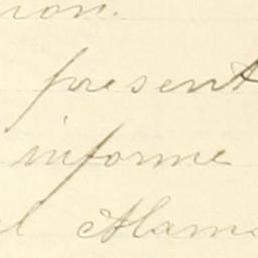 ion.
present
informe
el Alam